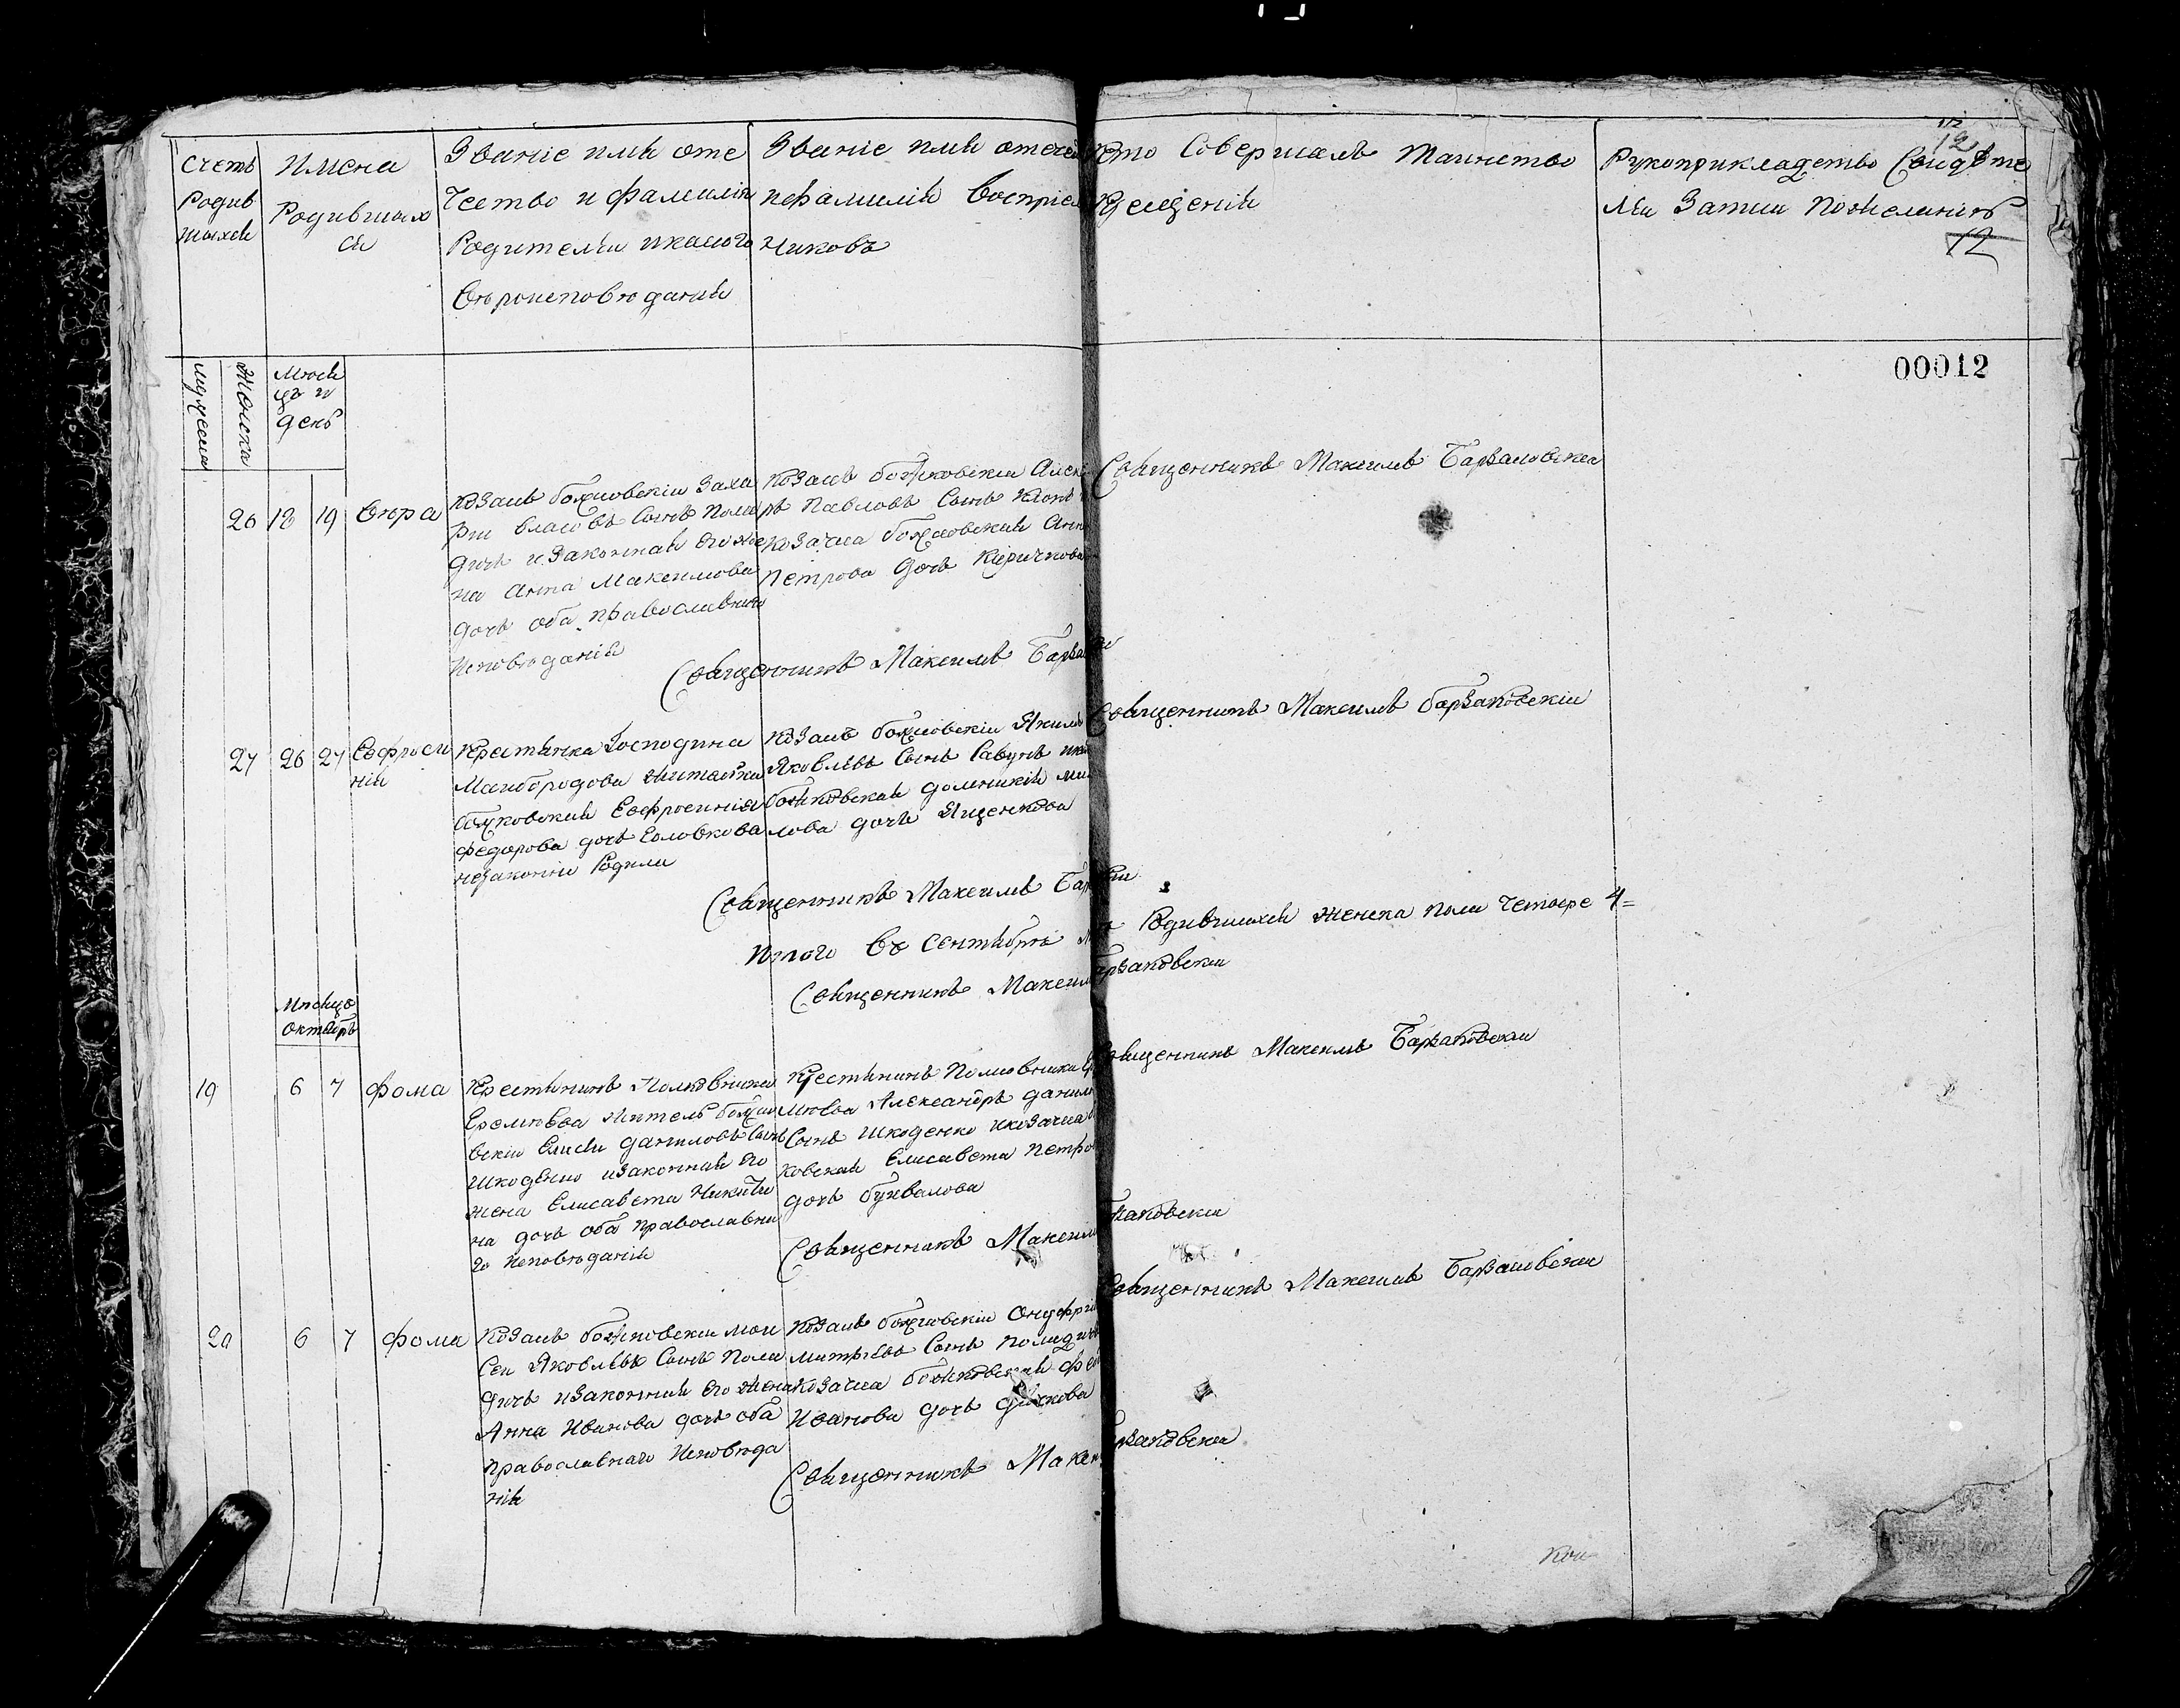 12
Счетъ Родив шыхся
Имена Родившых ся
Званіе имя оте
чество и фамилія
Родителѣй икакого
Вѣроисповѣданія
Званіе имя отече
ифамилія Воспріем
никовъ
Кто Совершалъ Таинство
Крещенія
Рукоприкладство Свидѣте
лѣй Записи Пожеланію
12
00012
мужеска
Женска
Мѣся
цъ и
день
26 18 19 Вѣра
Козакъ божковскіи Заха
рій Власовъ Сынъ Пола
дичъ и Законная Его же
на Анна Максимова
дочь оба православнаго
Исповѣданія
Козакъ божковскіи Алекс
ръ Павловъ Сынъ
козачка божковская Анн
Петрова дочь Киричкова
Священникъ Максимъ Барзаковскіи
Священникъ Максимъ Барзаковскіи
27 26 27 Евфроси
нія
Крестянка Господина
Маибородова жителка
божковская Евфросинія
Федорова дочь Головкова
незаконно Родила
Козакъ божковскіи Якимъ
Яковлѣвъ Сынъ Савунъ
божковская домникія
лова дочь Яценкова
Священникъ Максимъ барзаковскіи
Священникъ Максимъ
Итого Въ Сентябрѣ Родившихся женска пола четыре 4=
Священникъ Максимъ Барзаковскіи
Мѣсяцъ
Октябрь
19 6 7 Фома
Крестянинъ Полковника
Еремѣева житель божко
вскіи Елисѣй даниловъ Сынъ
Шкоденко изаконная Его
жена Елисавета Никити
на дочь оба Православна
го Исповѣданія
Крестянинъ Полковника
мѣева Александръ данил
Сынъ Шкоденко икозачка
ковская Елисавета Петро
дочь буквалова
Священникъ Максимъ Барзаковскіи
Священникъ Максимъ Барзаковскіи
20 6 7 Фома
Козакъ божковскіи Мои
Сеи Яковлѣвъ Сынъ Пола
дичъ изаконная Его жена
Анна Иванова дочь оба
православнаго Исповѣда
нія
Козакъ божковскіи Онуфріи
митріевъ Сынъ Поладичъ
Козачка божковская
Иванова дочь
Священникъ Максимъ Барзаковскіи
Священникъ Максимъ Барзаковскіи